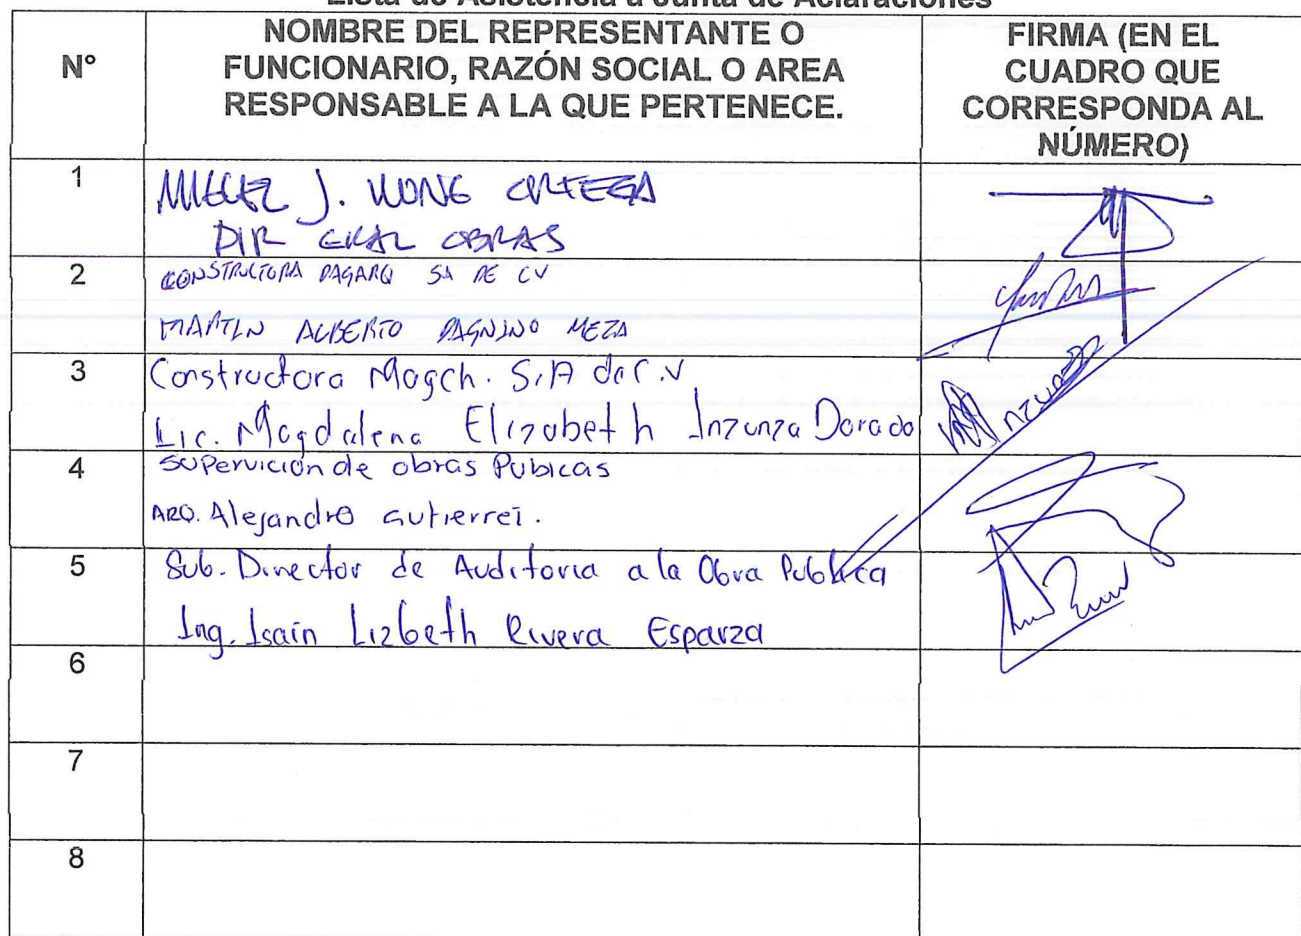 Lista de Asistencia a Junta de Aclaraciones
N°
NOMBRE DEL REPRESENTANTE O
FUNCIONARIO, RAZÓN SOCIAL O AREA
RESPONSABLE A LA QUE PERTENECE.
FIRMA (EN EL
CUADRO QUE
CORRESPONDA AL
NÚMERO)
1
MIGUEL J. WONG ORTEGA
DIR GRAL OBRAS
2
CONSTRUCTORA PAGARQ SA DE CV
MARTIN ALBERTO PAGNINO MEZA
3
Constructora Magch. S.A de C.V
Lic. Magdalena Elizabeth Inzunza Dorado
Inzunza
4
Supervición de obras Pubicas
ARQ. Alejandro Gutierrez.
5
Sub. Director de Auditoria a la Obra Publica
Ing. Isain Lizbeth Rivera Esparza
6
7
8